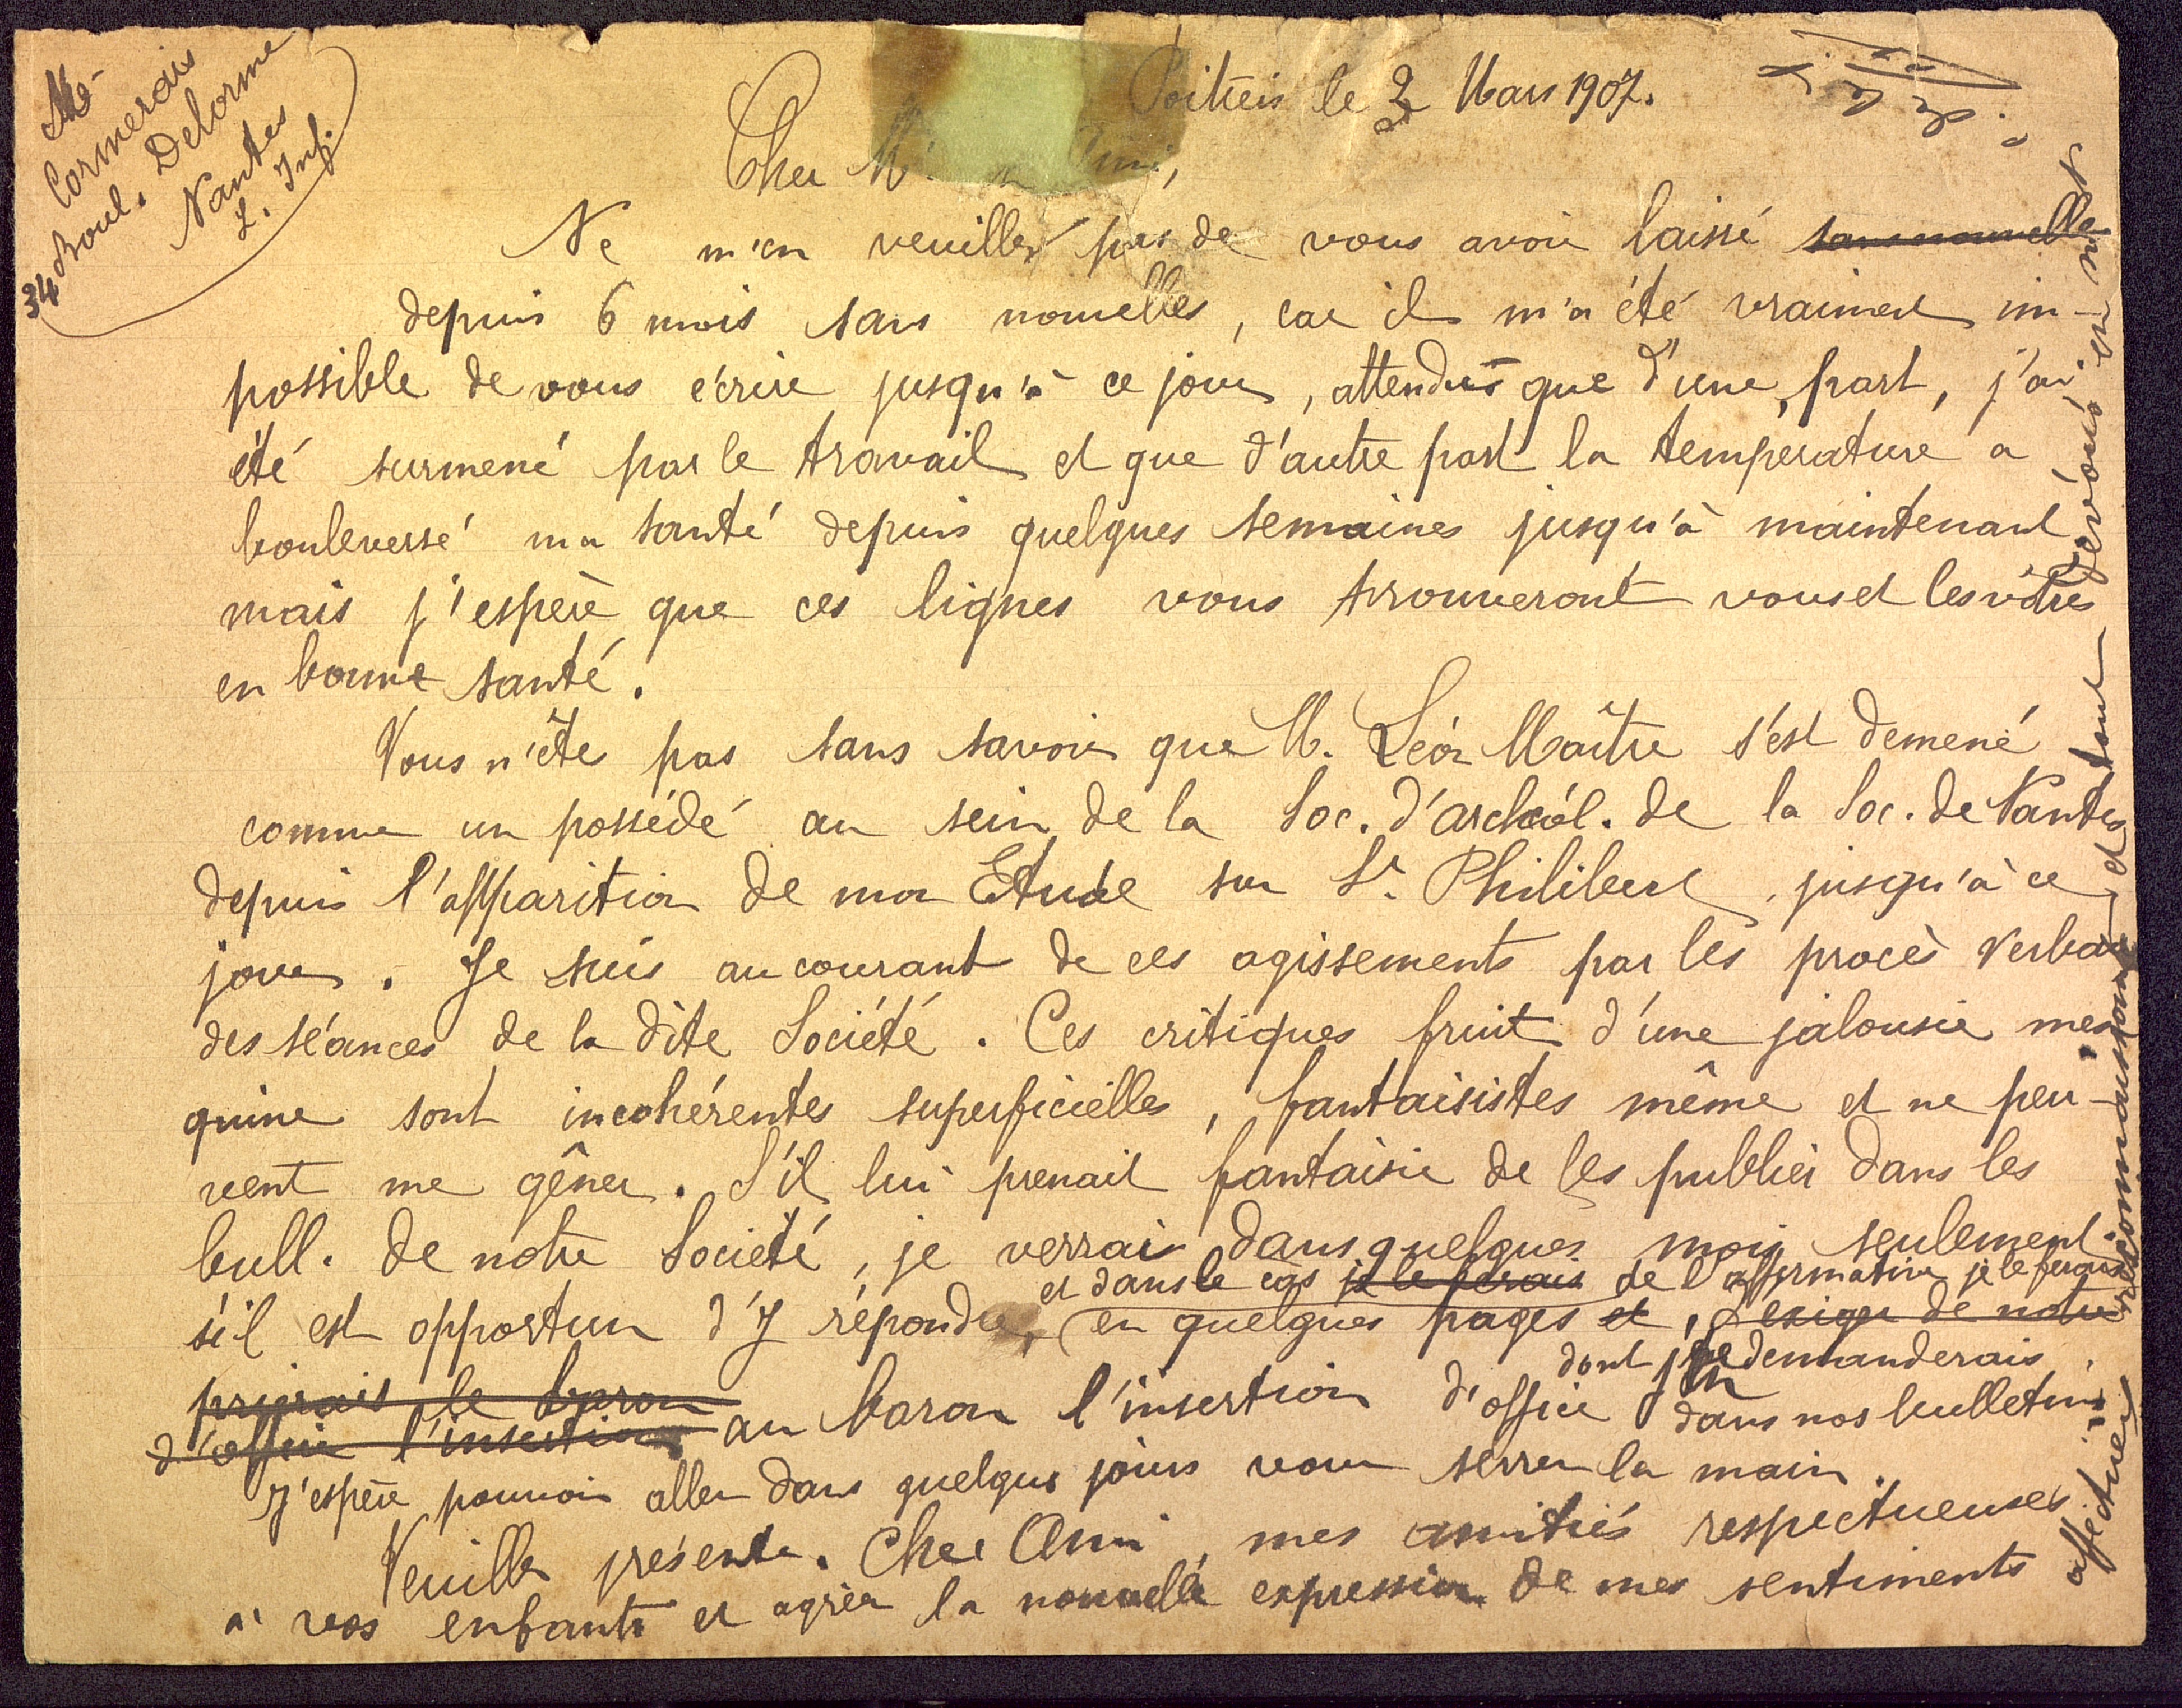 Mr
Cormerais
34 Boul. Delorme
Nantes
L. Inf.
Poitiers le 2 Mars 1907.
Cher Mr Ami,
Ne m'en veuillez pas de vous avoir laissé sans nouvelles
depuis 6 mois sans nouvelles, car il m'a été vraiment im-
possible de vous écrire jusqu'à ce jour, attendus que d'une part, j'ai
été surmené par le travail et que d'autre part la temperature a
bouleversé ma santé depuis quelques semaines jusqu'à maintenant
mais j'espère que ces lignes vous trouveront vous et les vôtres
en bonne santé.
Vous n'êtes pas sans savoir que M. Léon Maître s'est demené
comme un possédé au sein de la Soc. d'archéol. de la Soc. de Nantes
depuis l'apparition de mon Etude sur St. Philibert jusqu'à ce
jour. Je suis au courant de ces agissements par les procès verbaux
des séances de la dite Société. Ces critiques fruit d'une jalousie mes-
quine sont incohérentes superficielles, fantaisistes même et ne peu-
vent me gêner. S'il lui prenait fantaisie de les publier dans les
bull. de notre Société, je verrais dans quelques mois seulement
s'il est opportun d'y répondre, et dans le cas je le ferais de l'affirmative je le ferais
en quelques pages et, exiger de notre
prierais le baron
dont j'en demanderais
d'office l'insertion au baron l'insertion d'office dans nos bulletins
J'espère pouvoir aller dans quelques jours vous serrer la main.
Veuillez présenter, Cher Ami, mes amitiés respectueuses
à vos enfants et agréer la nouvelle expression de mes sentiments
affectueux reconnaissants et tout dévoués en